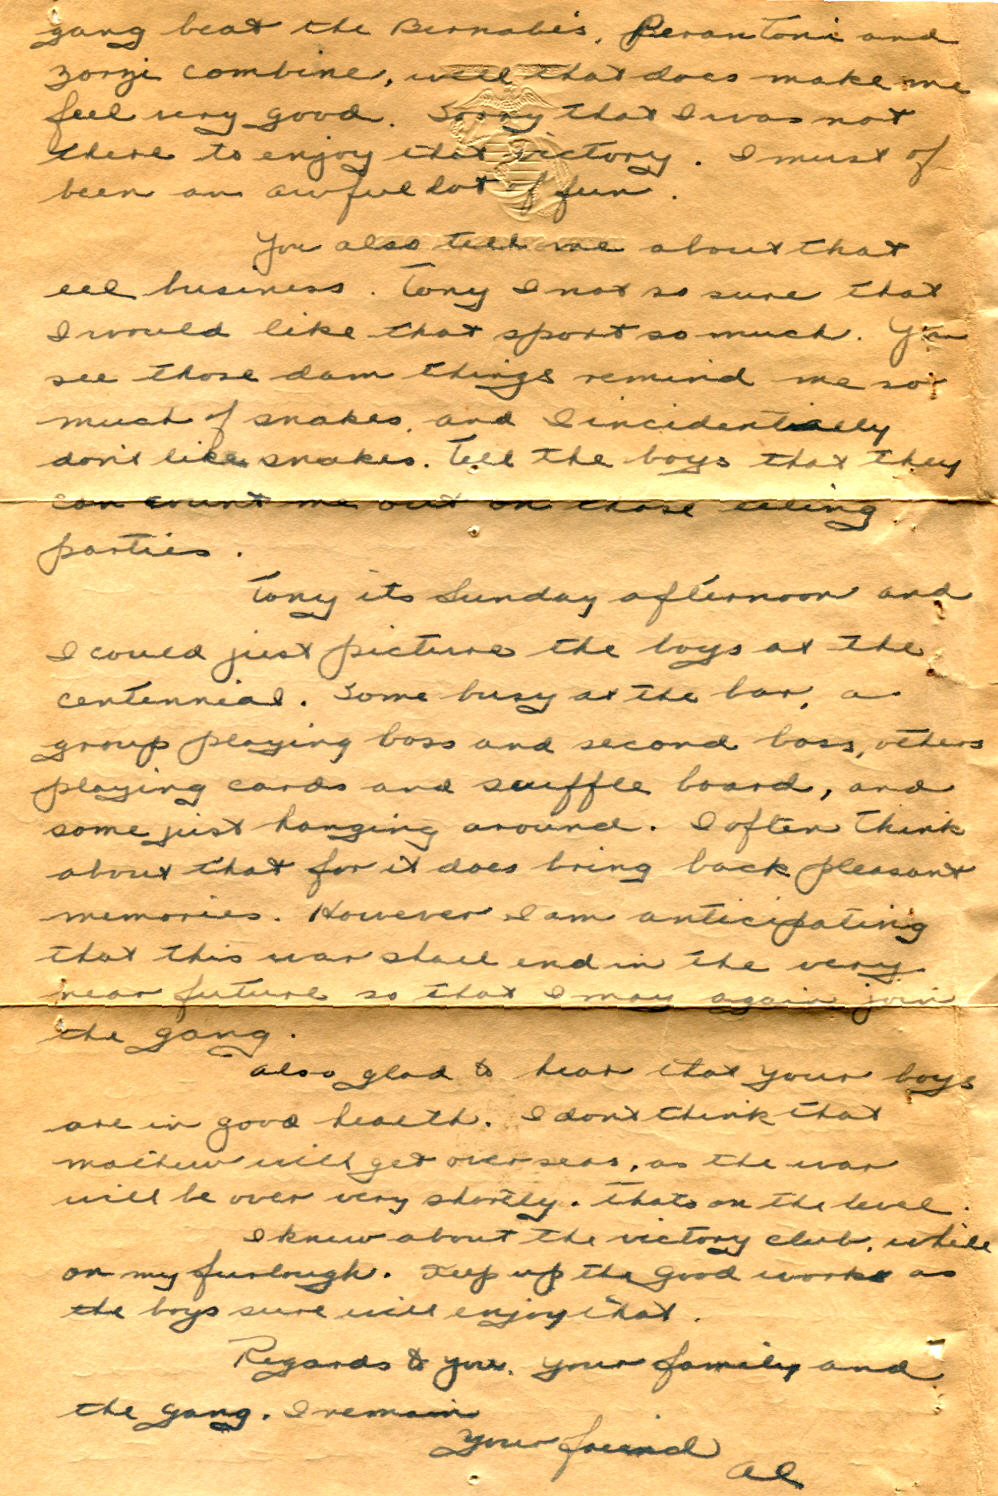 gang beat the Bernabe's, Perantoni and
Zorzi combine, well that does make me
feel very good. Sorry that I was not
there to enjoy that victory. I must of
been an awful lot of fun.
You also tell me about that
eel business. Tony I not so sure that
I would like that sport so much. You
see those dam things remind me so
much of snakes, and I incidentially
don't like snakes. Tell the boys that they
can count me out on those eeling
parties.
Tony its Sunday afternoon and
I could just picture the boys at the
centennial. Some busy at the bar, a
group playing boss and second boss, others
playing cards and suffle board, and
some just hanging around. I often think
about that for it does bring back pleasant
memories. However I am anticipating
that this war shall end in the very
near future so that I may again join
the gang.
Also glad to hear that your boys
are in good health. I dont think that
will get overseas, as the war
will be over very shortly. Thats on the level.
I knew about the victory club, while
on my furlough. Keep up the good work as
the boys sure will enjoy that.
Regards to you, your family and
the gang. I remain
Your friend
Al